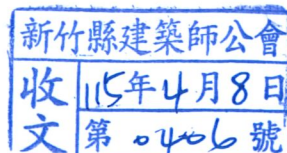 新竹縣建築師公會
收文
115年4月8日
第0406號